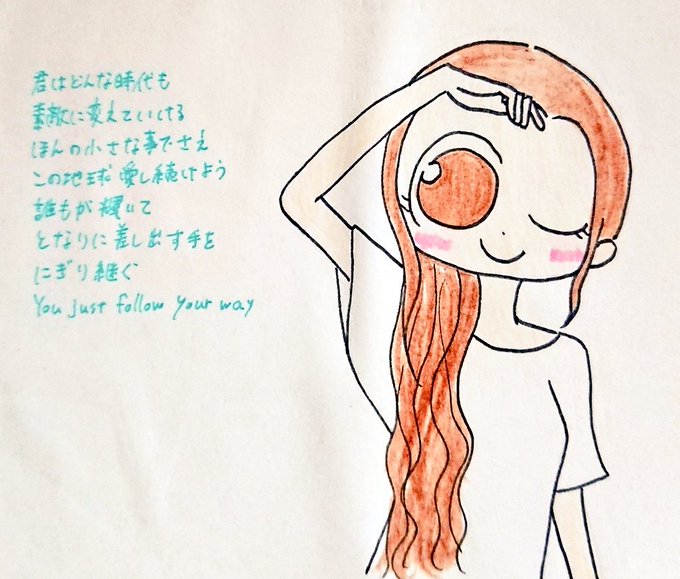 君はどんな時代も
素敵に変えていける
ほんの小さな事でさえ
この地球愛し続けよう
誰もが輝いて
となりに差し出す手を
にぎり継ぐ
You just follow your way